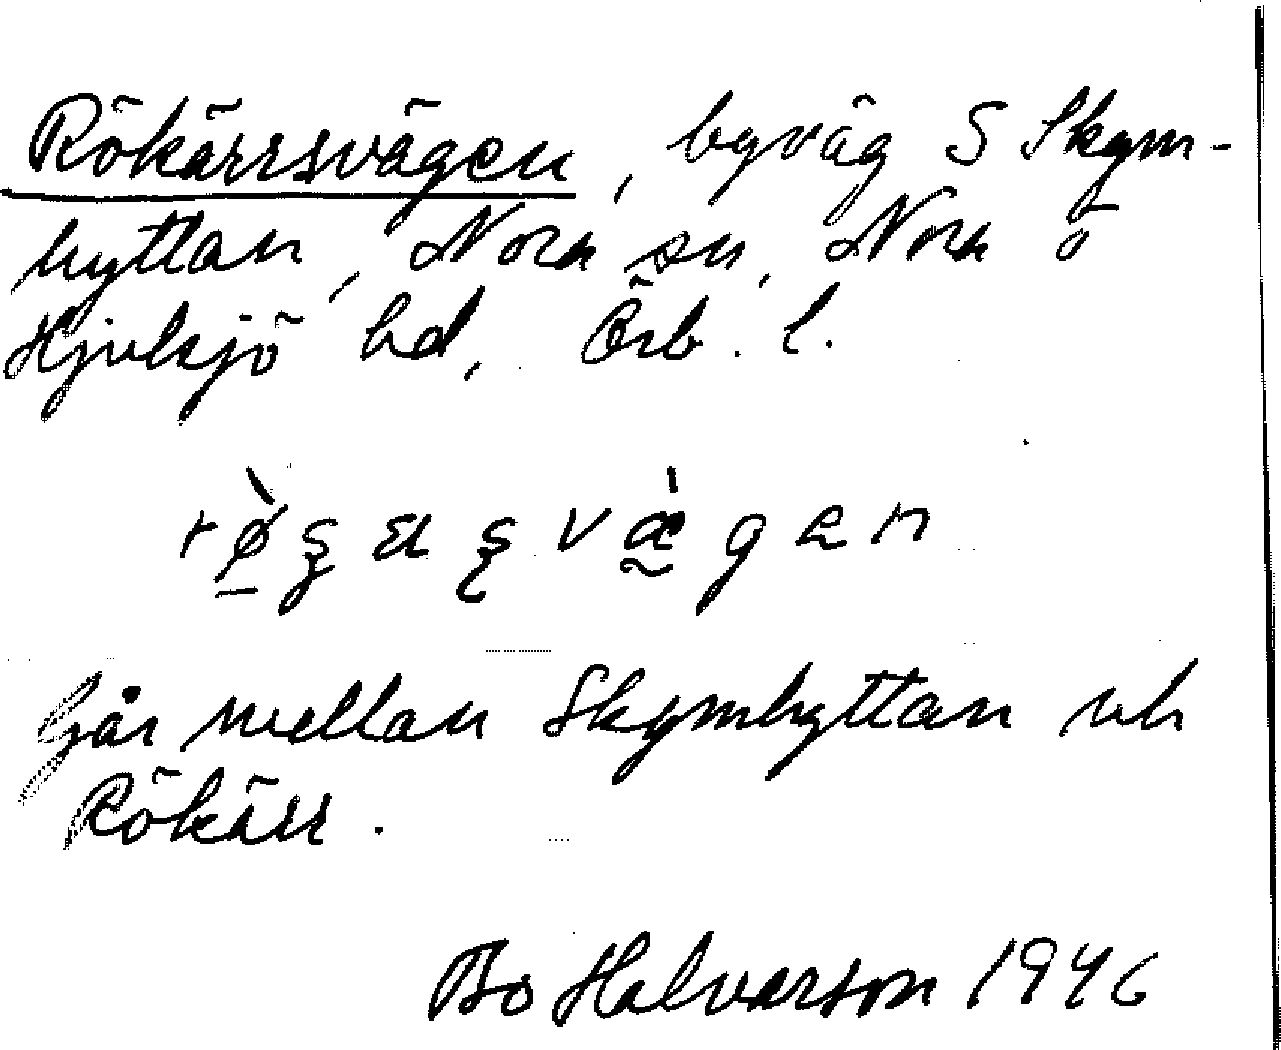 Rökärrsvägen, byväg S Skym-
hyttan, Nora sn, Nora o
Hjulsjö hd, Örb. l.
vägen
Går mellan Skymhyttan och
Rökärr.
Bo Halvarson 1946